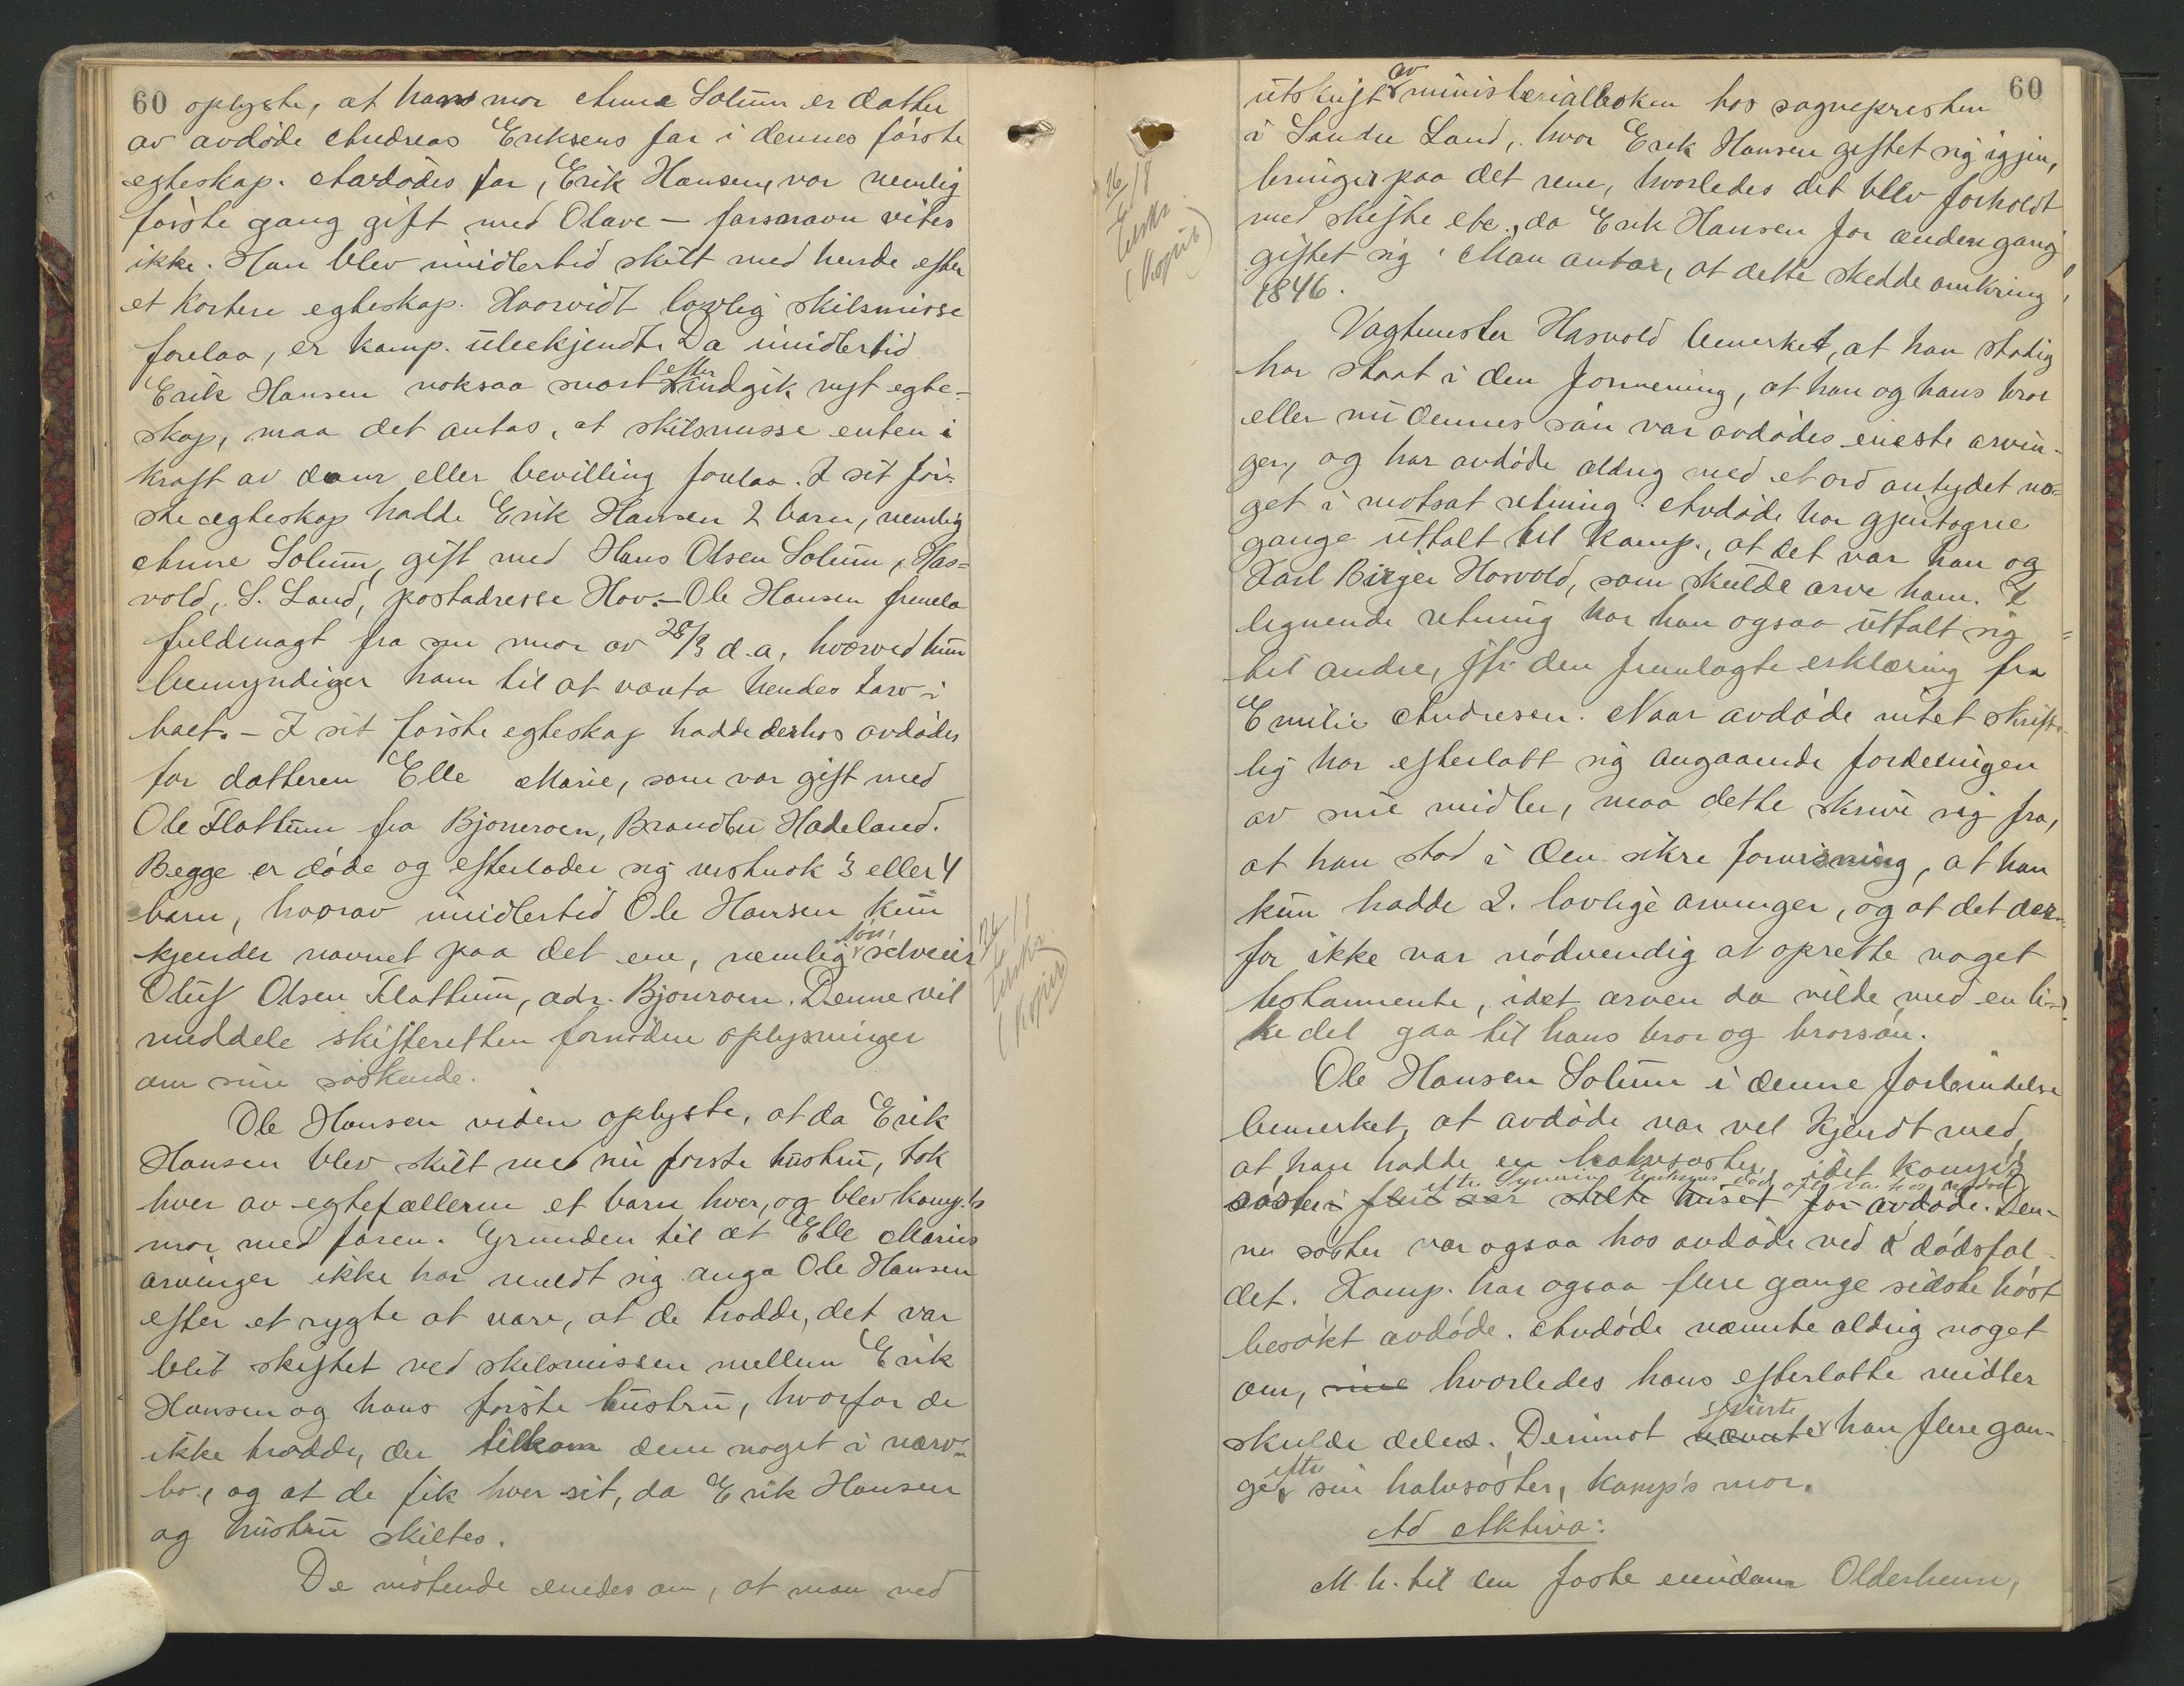 60 oplyste, at hans mor Anne Solum er datter
av avdøde Andreas Eriksens far i dennes første
egteskap. Avdødes far, Erik Hansen, var nemlig
første gang gift med Olave – farsnavn vites
ikke. Han blev imidlertid skilt med hende efter
et kortere egteskap. Hvorvidt lovlig skilsmisse
forelaa, er komp. ubekjendt. Da imidlertid
Erik Hansen noksaa snart efter indgik nyt egte-
skap, maa det antas, at skilsmisse enten i
kraft av dom eller bevilling forelaa. I sit før-
ste egteskap hadde Erik Hansen 2 barn, nemlig
Anne Solum, gift med Hans Olsen Solum, Has-
vold, S. Land, postadresse Hov. – Ole Hansen fremla
fuldmagt fra sin mor av 28/3 d.a., hvorved hun
bemyndiger ham til at vareta hendes tarv i
boet. – I sit første egteskap hadde derhos avdødes
far datteren Elle Marie, som var gift med
Ole Flattum fra Bjoneroen, Brandbu, Hadeland.
Begge er døde og efterlader sig visstnok 3 eller 4
barn, hvorav imidlertid Ole Hansen kun
kjender navnet paa det ene, nemlig søn, selveier
Oluf Olsen Flattum, adr. Bjonroen. Denne vil
meddele skifteretten fornødne oplysninger
om sine søskende.
Ole Hansen viden oplyste, at da Erik
Hansen blev skilt med sin første hustru, tok
hver av egtefællerne et barn hver, og blev komp.'s
mor med faren. Grunden til at Elle Maries
arvinger ikke har meldt sig anga Ole Hansen
efter et rygte at være, at de trodde, det var
blit skiftet ved skilsmissen mellem Erik
Hansen og hans første hustru, hvorfor de
ikke trodde, der tilkom dem noget i nærv.
bo, og at de fik hver sit, da Erik Hansen
og hustru skiltes.
De møtende enedes om, at man ved
(kopiert)
(kopiert)
60
utskrift av ministerialboken hos sognepresten
i Søndre Land, hvor Erik Hansen giftet sig igjen,
bringer paa det rene, hvorledes det blev forholdt
med skifte etc., da Erik Hansen for anden gang
giftet sig. Man antar, at dette skedde omkring
1846.
Vagtmester Hasvold bemerket, at han stadig
har staat i den formening, at han og hans bror
eller nu dennes søn var avdødes eneste arvin-
ger, og har avdøde aldrig med et ord antydet no-
get i motsat retning. Avdøde har gjentagne
gange uttalt til komp., at det var han og
Karl Birger Hasvold, som skulde arve ham. I
lignende retning har han ogsaa uttalt sig
til andre, jfr. den fremlagte erklæring fra
Emilie Andresen. Naar avdøde intet skrift-
lig har efterlatt sig angaaende fordelingen
av sine midler, maa dette skrive sig fra,
at han stod i den sikre forvisning, at han
kun hadde 2. lovlige arvinger, og at det der-
for ikke var nødvendig at oprette noget
testamente, idet arven da vilde med en li-
ke del gaa til hans bror og brorsøn.
Ole Hansen Solum i denne forbindelse
bemerket, at avdøde var vel kjendt med,
at han hadde en halvsøster, idet komp's
søster i flere aar stelte huset for avdøde. Den-
ne søster var ogsaa hos avdøde ved dødsfal-
det. Komp. har ogsaa flere gange sidste høst
besøkt avdøde. Avdøde nævnte aldrig noget
om, sine hvorledes hans efterlatte midler
skulde deles. Derimot nævnte spurte han flere gan-
ge efter sin halvsøster, komp's mor.
Ad Aktiva:
M. h. til den faste eiendom Olderheim,